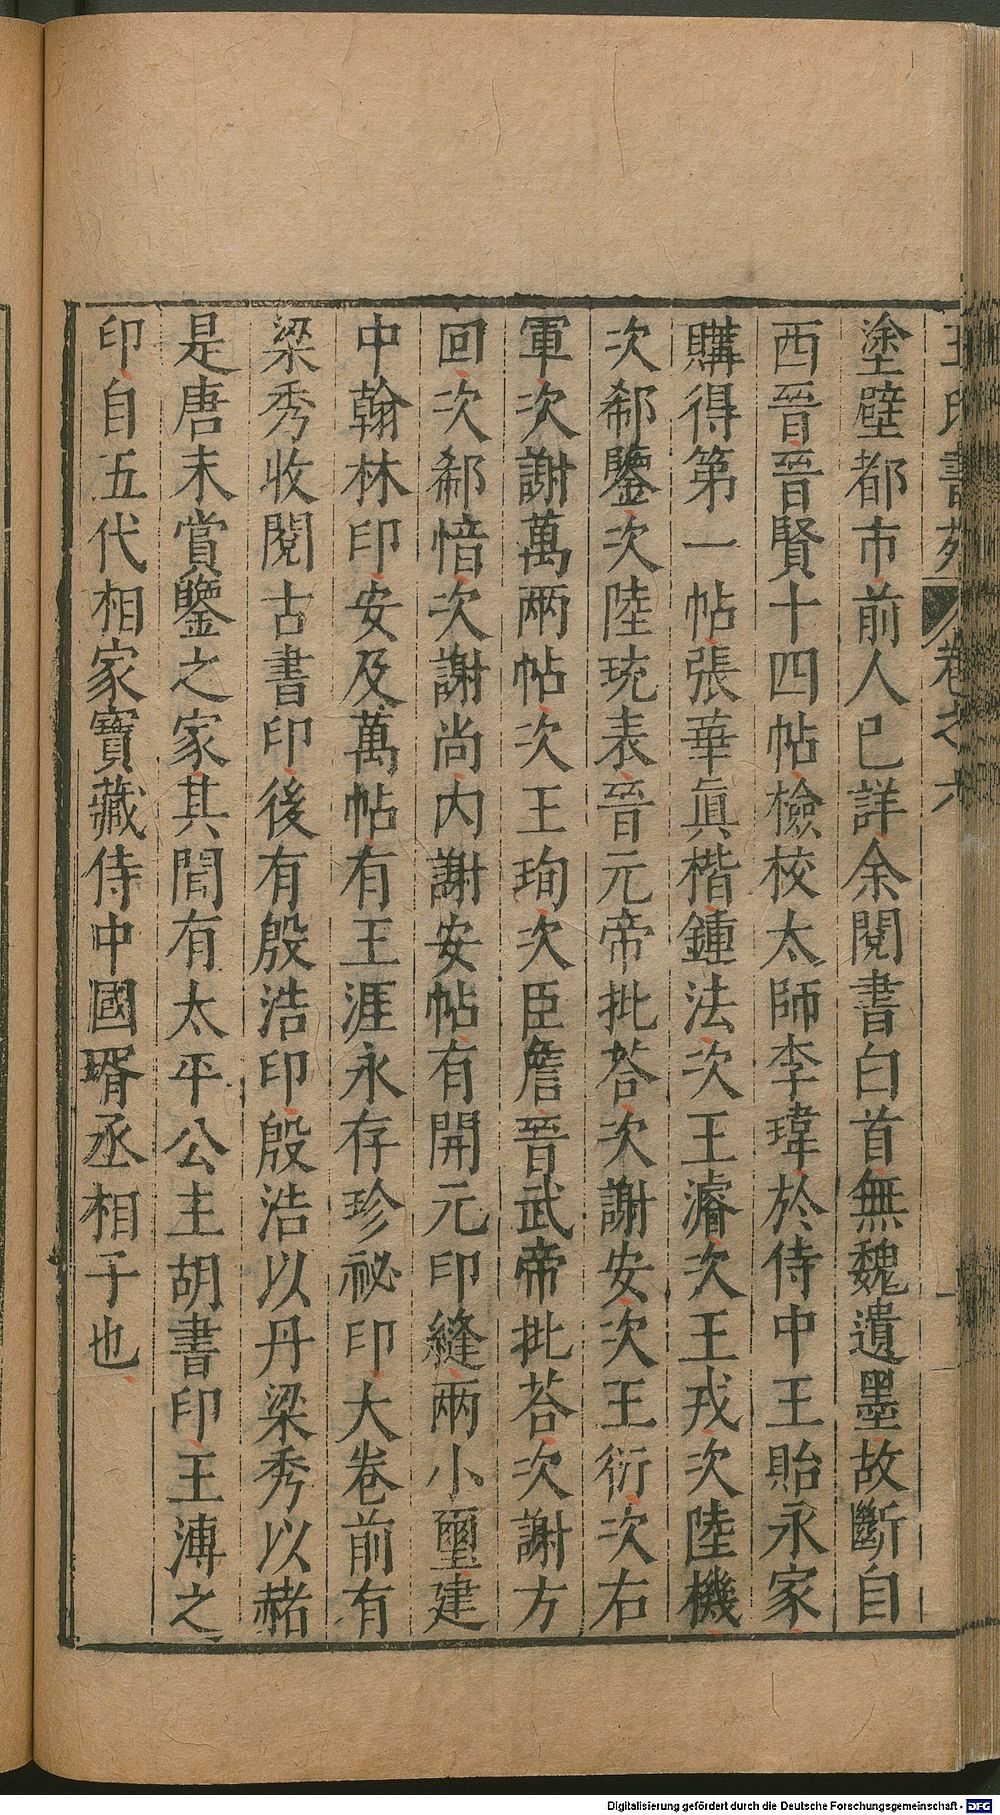 王氏書苑 卷之六
塗壁都市前人已詳余閱書白首無魏遺墨故斷自
西晉晉賢十四帖檢校太師李瑋於侍中王貽永家
購得第一帖張華眞楷鍾法次王濬次王戎次陸機
次郗鑒次陸玩表晉元帝批荅次謝安次王衍次右
軍次謝萬兩帖次王珣次臣詹晉武帝批荅次謝方
回次郗愔次謝尚内謝安帖有開元印縫兩小璽建
中翰林印安及萬帖有王涯永存珍祕印大卷前有
梁秀收閱古書印後有殷浩印殷浩以丹梁秀以赭
是唐末賞鑒之家其間有太平公主胡書印王溥之
印自五代相家寶藏侍中國壻丞相子也
Digitalisierung gefördert durch die Deutsche Forschungsgemeinschaft - DFG